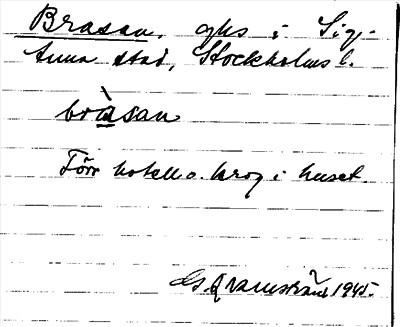 Brasan, ghs i Sig-
tuna stad, Stockholms l.
bràsan
Förr hotell o. krog i huset.
1945.